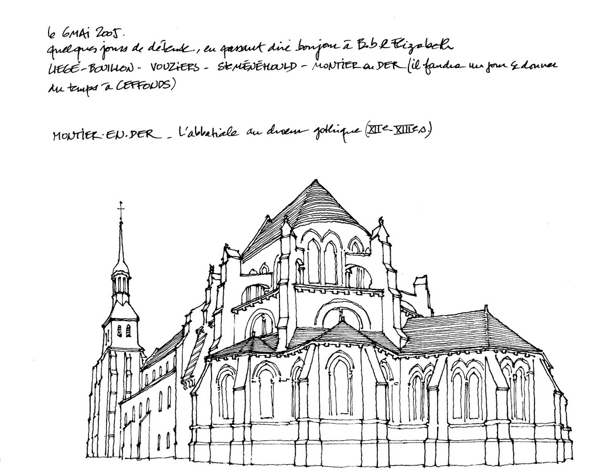 le 6 MAI 2005.
Quelques jours de détente, en passant dire bonjour à Bob & Elizabeth
LIEGE - BOUILLON - VOUZIERS - STE MÉNÉHOULD - MONTIER en DER (il faudra un jour se donner
du temps à CEFFONDS)
MONTIER-EN-DER - L'abbatiale au choeur gothique (XIIe-XIIIe s.)